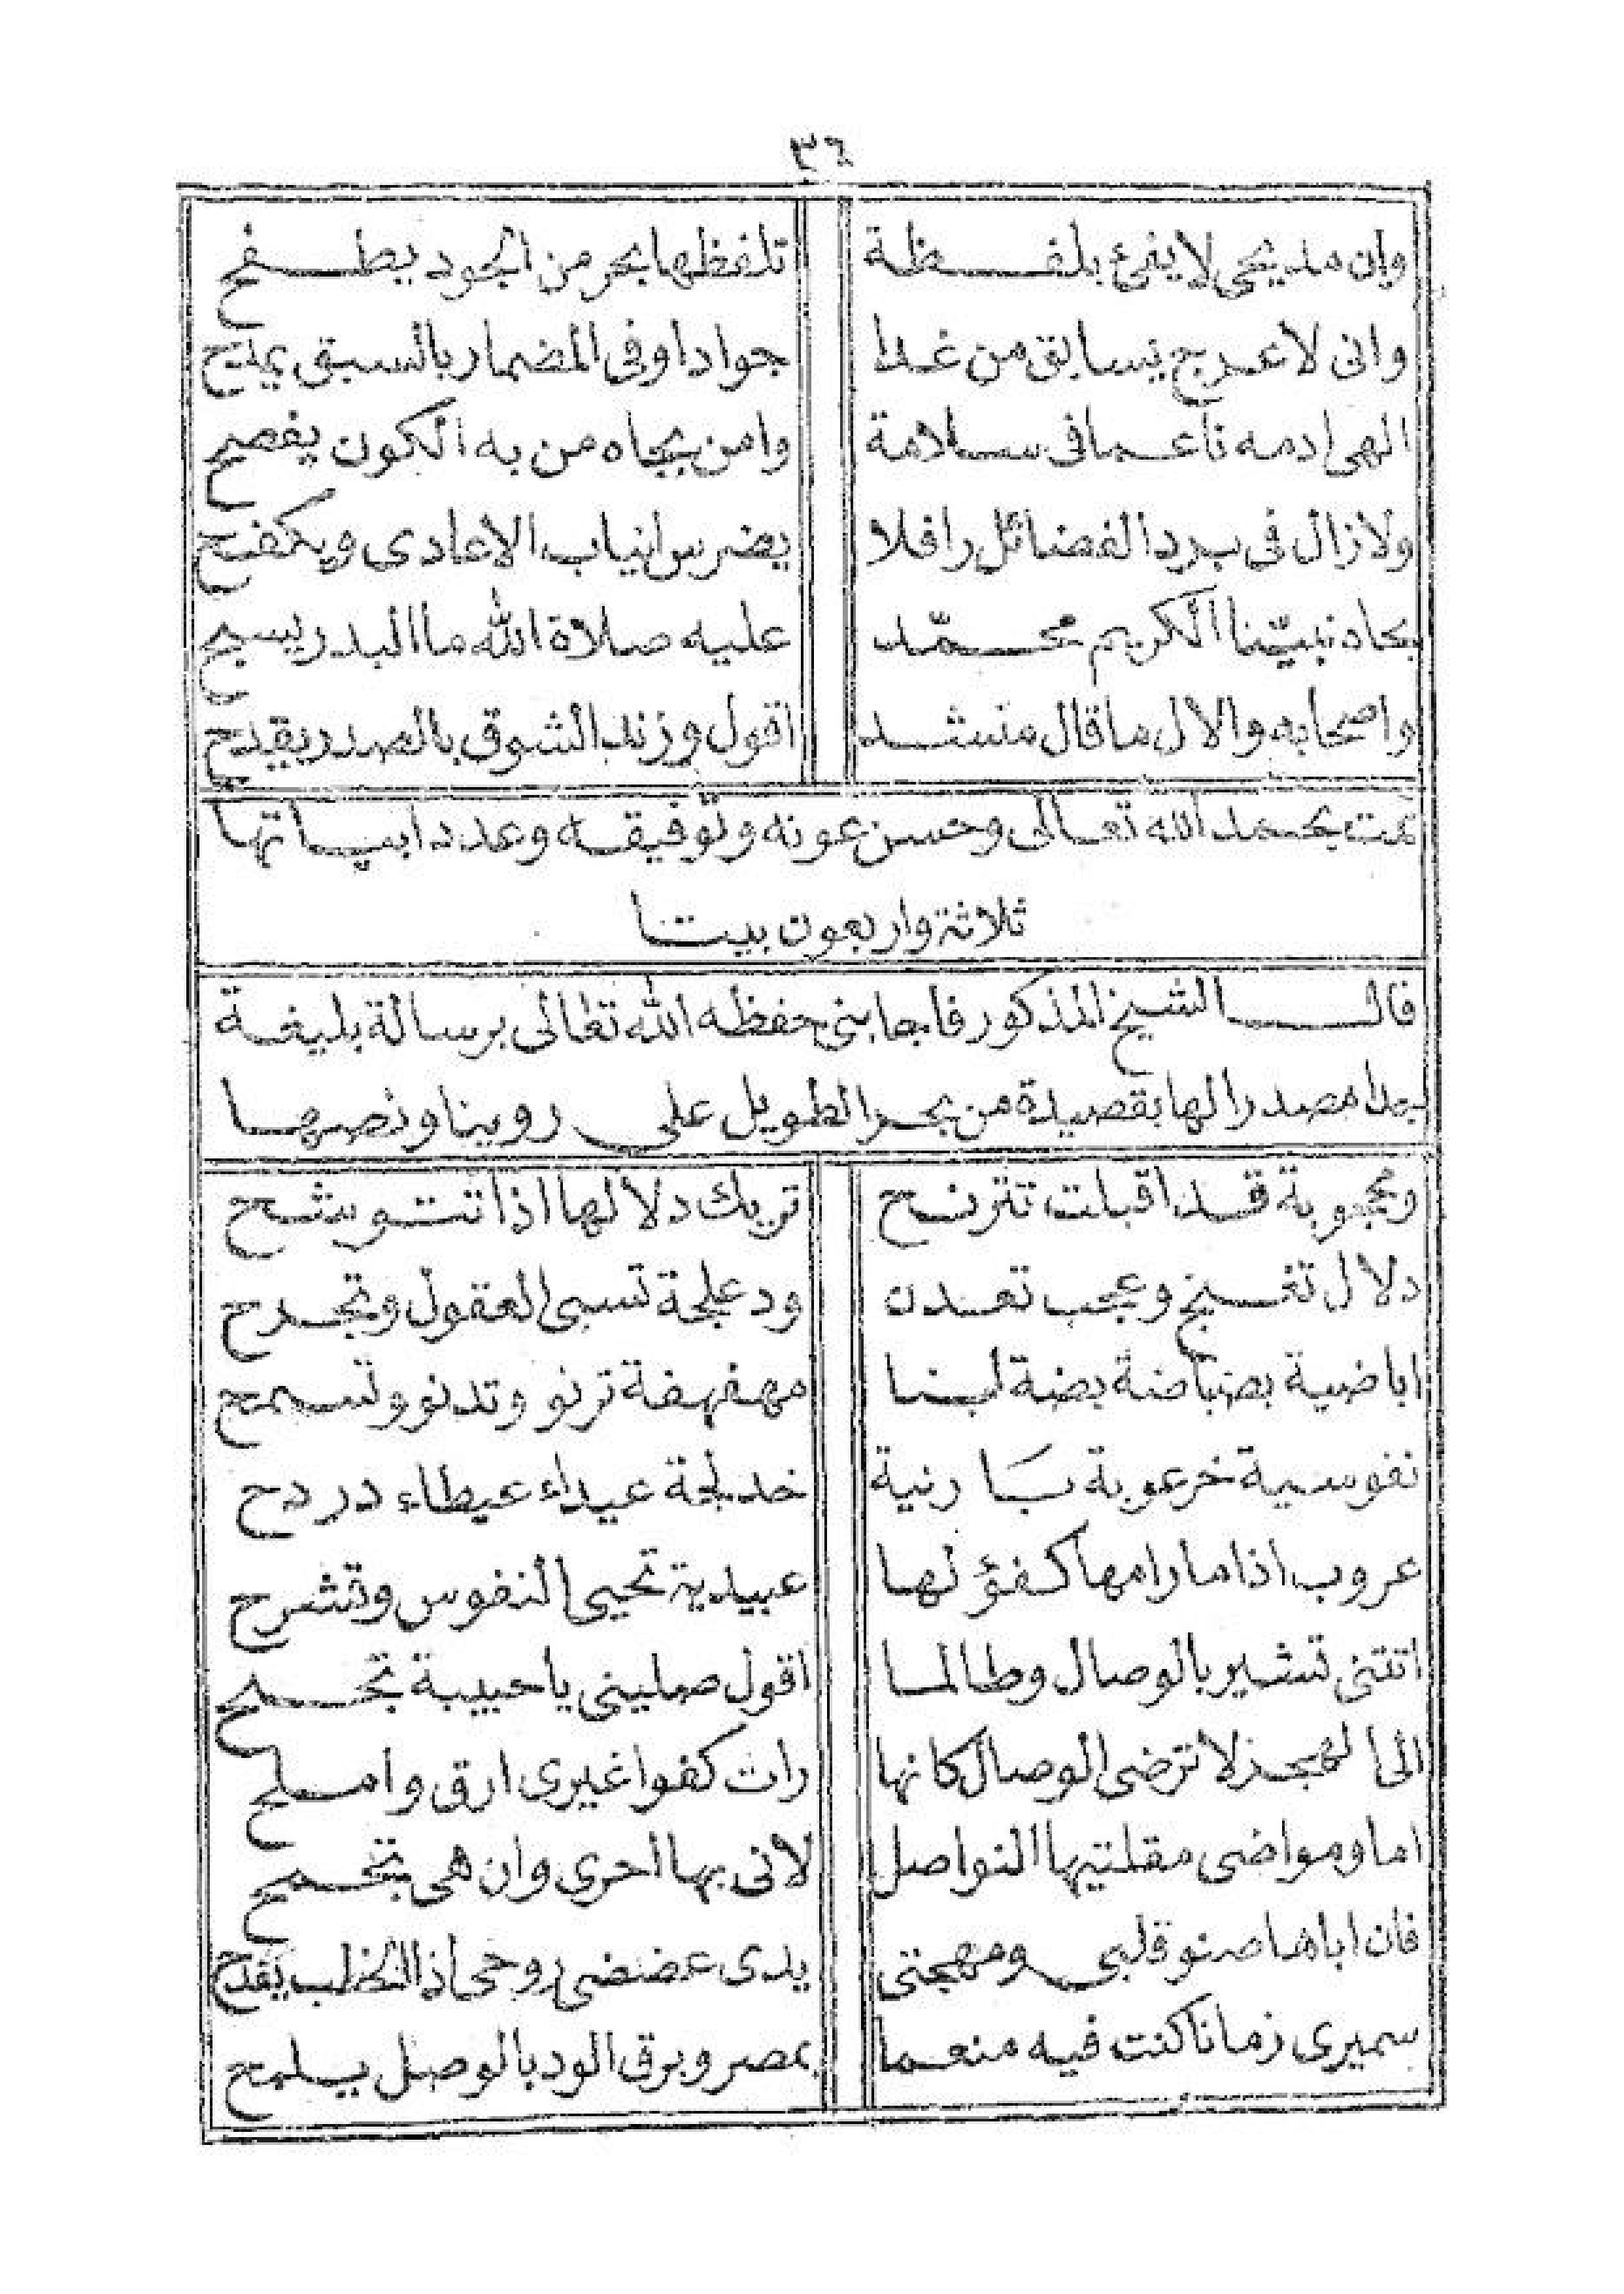 ٣٦
وان مديحى لا يفئ بلفـــظة تلفظها بحر من الجود يطـــفح
وانى لاعرج يسابق من غدا جوادا وفى المضمار بالسبق يمتح
الهى ادمه ناعما فى سلامة وامن بجاه من به الكون يفصح
ولازال فى برد الفضائل رافلا يضرس انياب الاعادى ويكفح
بجاه نبيّنا الكريم محمّد عليه صلاة الله ما البدر يسبح
واصحابه والال ما قال منشد اقول وزند الشوق بالصدر يقدح
تمت بحمد الله تعالى وحسن عونه وتوفيقه وعدد ابياتها
ثلاثة واربعون بيتا
قال الشيخ المذكور فاجابنى حفظه الله تعالى برسالة بليغة
جدا مصدرا لها بقصيدة من بحر الطويل على روينا ونصها
ومحجوبة قد اقبلت تترنح تريك دلالها اذا تتوشح
دلال تغنج وعجب تعددت ودعلجة تسبى العقول وتجرح
اباضية بضباضة بضة لبنا مهفهفة ترنو وتدنو وتسمح
نفوسية خرعوبة بَارنية خدلجة عيداء عيطاء دردح
عروب اذا ما رامها كفؤ لها عبيدية تحيى النفوس وتشرح
اتتنى تشير بالوصال وطالما اقول صلينى يا حبيبة تجلح
الى الهجر لا ترضى الوصال كانها رات كفوا غيرى ارق واملح
اما ومواضى مقلتيها النواصل لانى بها احرى وان هى تجمح
فان اباها صنو قلبى ومهجتى يدى عضضى روحى اذا الخطب يفدح
سميرى زمانا كنت فيه منعما بمصر وبرق الود بالوصل يلمح